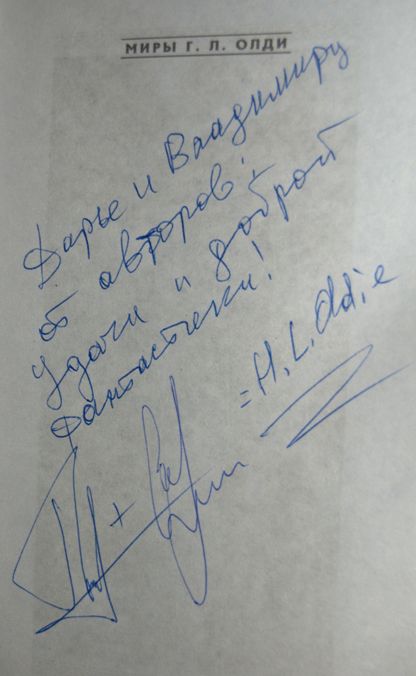 МИРЫ Г. Л. ОЛДИ
Дарье и Владимиру
от авторов:
удачи и доброй
фантастики!
+ = H. L. Oldie